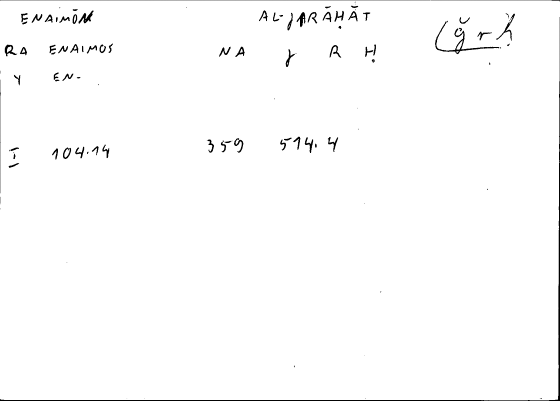 ENAIMŌN AL-JARĀḤĀT (ǧrḥ
RA ENAIMOS NA J R Ḥ
Y EN-
I 104.14 359 514.4